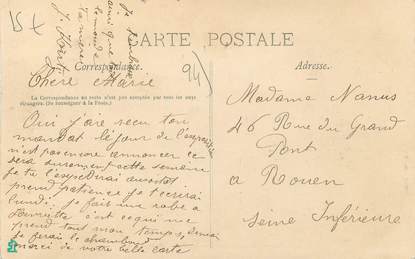 15 t
94)
CARTE POSTALE
Correspondance.
Adresse.
Chère Marie
La Correspondance au recto n'est pas acceptée par tous les pays
étrangers. (Se renseigner à la Poste.)
Oui j'ai reçu ton
mandat le jour de l'exposition
n'est pas encore annoncer ce
sera surement cette semaine
je te l'expédirai aussitot
prend patience je t'ecrirai
lundi je fait une robe a
Henriette c'est ce qui me
prend tout mon temps, demain
je ferai le
merci de votre belle carte
je
ainsi que
le monde
ta mère
J.
Madame Nanus
46 Rue du Grand
Pont
a Rouen
Seine Inférieure